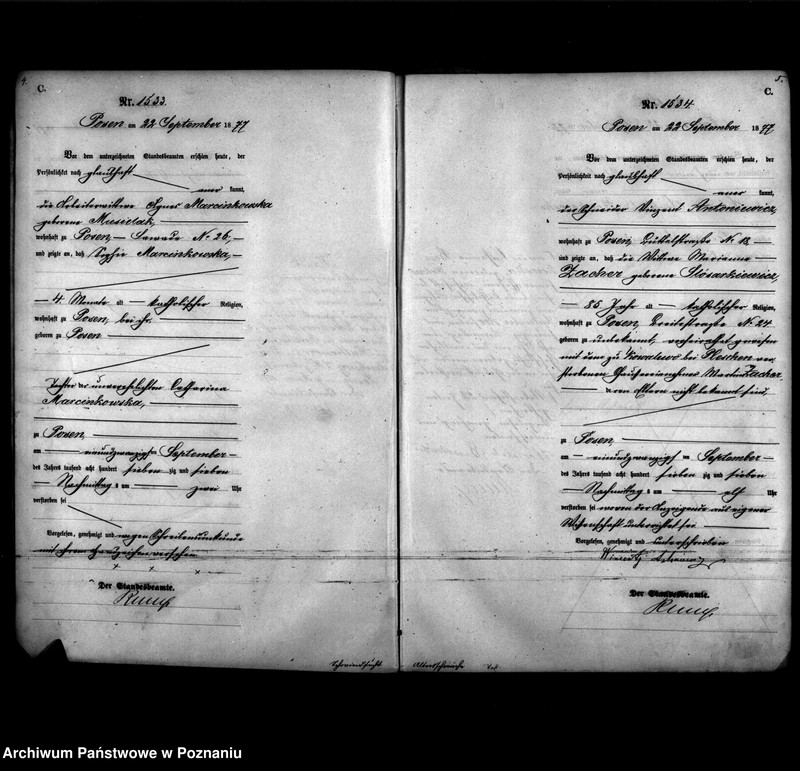 4.
C.
Nr. 1533.
Posen am 22 September 1877
Vor dem unterzeichneten Standesbeamten erschien heute, der
Persönlichkeit nach glaubhaft
aner kannt,
die Arbeiterwittwe Agnes Marcinkowska
geborene Musielak,
wohnhaft zu Posen, Sawade No 26,
und zeigte an, daß Sophie Marcinkowska,
4 Monate alt katholischer Religion,
wohnhaft zu Posen, bei ihr,
geboren zu Posen
Tochter der unverehelichten Catharina
Marcinkowska,
zu Posen,
am einundzwanzigsten September
des Jahres tausend acht hundert sieben zig und sieben
Nachmittags um zwei Uhr
verstorben sei
Vorgelesen, genehmigt und wegen Schreibensunkunde
mit ihrem Handzeichen versehen
+ + x
Der Standesbeamte.
Rump
Schwindsucht
5.
C.
Nr. 1534.
Posen am 22 September 1877
Vor dem unterzeichneten Standesbeamten erschien heute, der
Persönlichkeit nach glaubhaft
aner kannt,
der Schneider Vinzent Antoniewicz,
wohnhaft zu Posen, Büttelstraße No 18,
und zeigte an, daß die Wittwe Marianna
Zacher geborene Slosarkiewicz,
85 Jahr alt katholischer Religion,
wohnhaft zu Posen, Breitestraße No 24
geboren zu unbekannt, verheirathet gewesen
mit dem zu Kowalewo bei Pleschen ver-
storbenen Martin Zacher,
deren Eltern nicht bekannt sind,
zu Posen
am einundzwanzigsten September
des Jahres tausend acht hundert sieben zig und sieben
Nachmittags um elf Uhr
verstorben sei wovon der Anzeigende aus eigener
Wissenschaft unterrichtet sei
Vorgelesen, genehmigt und unterschrieben
Der Standesbeamte.
Rump
Altersschwäche
Archiwum Państwowe w Poznaniu